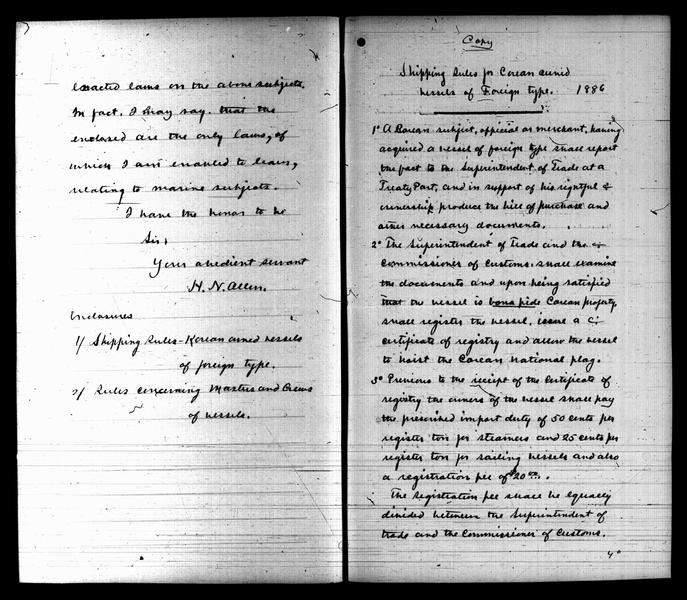 enacted laws on the above subjects.
In fact, I may say, that the
enclosed are the only laws, of
which I am enabled to learn,
relating to marine subjects.
I have the honor to be
Sir,
Your obedient servant
H. N. Allen.
Enclosures
1/ Shipping Rules-Korean owned vessels
of foreign type.
2/ Rules concerning Masters and Crews
of vessels.
Copy
Shipping Rules for Corean owned
vessels of Foreign type. 1886
1º A Corean subject, official or merchant, having
acquired a vessel of foreign type shall report
the fact to the Superintendent of Trade at a
Treaty Port, and in support of his rightful
ownership produce the bill of purchase and
other necessary documents.
2º The Superintendent of Trade and the
Commissioner of Customs, shall examine
the documents and upon being satisfied
that the vessel is bona fide Corean property
shall register the vessel, issue a
certificate of registry and allow the vessel
to hoist the Corean national flag.
3º Previous to the receipt of the Certificate of
registry the owners of the vessel shall pay
the prescribed import duty of 50 cents per
register ton for steamers and 25 cents per
register ton for sailing vessels and also
a registration fee of $20.00.
The registration fee shall be equally
divided between the Superintendent of
trade and the Commissioner of Customs.
4º